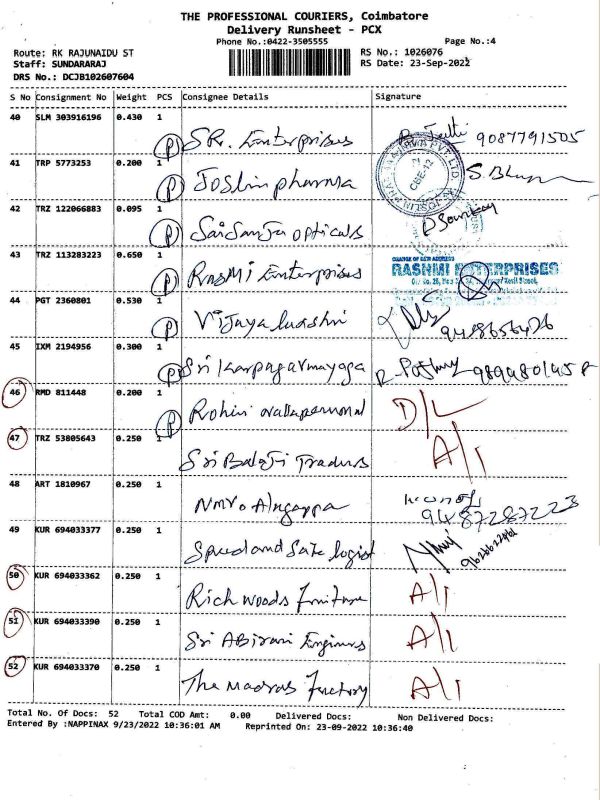 THE PROFESSIONAL COURIERS, Coimbatore
Delivery Runsheet - PCX
Phone No.:0422-3505555 Page No.:4
Route: RK RAJUNAIDU ST RS No.: 1026076
Staff: SUNDARARAJ RS Date: 23-Sep-2022
DRS No.: DCJB102607604
S No Consignment No Weight PCS Consignee Details Signature
40 SLM 303916196 0.430 1
P SR. Enterprises 9087791505
41 TRP 5773253 0.200 1
P Joslin pharma S.
42 TRZ 122066883 0.095 1
P Opticals
43 TRZ 113283223 0.650 1
P Rasmi Enterprises RASHMI ENTERPRISES
44 PGT 2360801 0.530 1
P Vijaya
45 IXM 2194956 0.300 1
P Sri
46 RMD 811448 0.200 1
P Rohini D/L
47 TRZ 53805643 0.250 1
Sri Balaji Traders A/I
48 ART 1810967 0.250 1
9487287223
49 KUR 694033377 0.250 1
Speed and Safe logist
50 KUR 694033362 0.250 1
Rich woods Furniture A/I
51 KUR 694033390 0.250 1
Sri ABirami Engineers A/I
52 KUR 694033370 0.250 1
The Madras Factory A/I
Total No. Of Docs: 52 Total COD Amt: 0.00 Delivered Docs: Non Delivered Docs:
Entered By :NAPPINAX 9/23/2022 10:36:01 AM Reprinted On: 23-09-2022 10:36:40